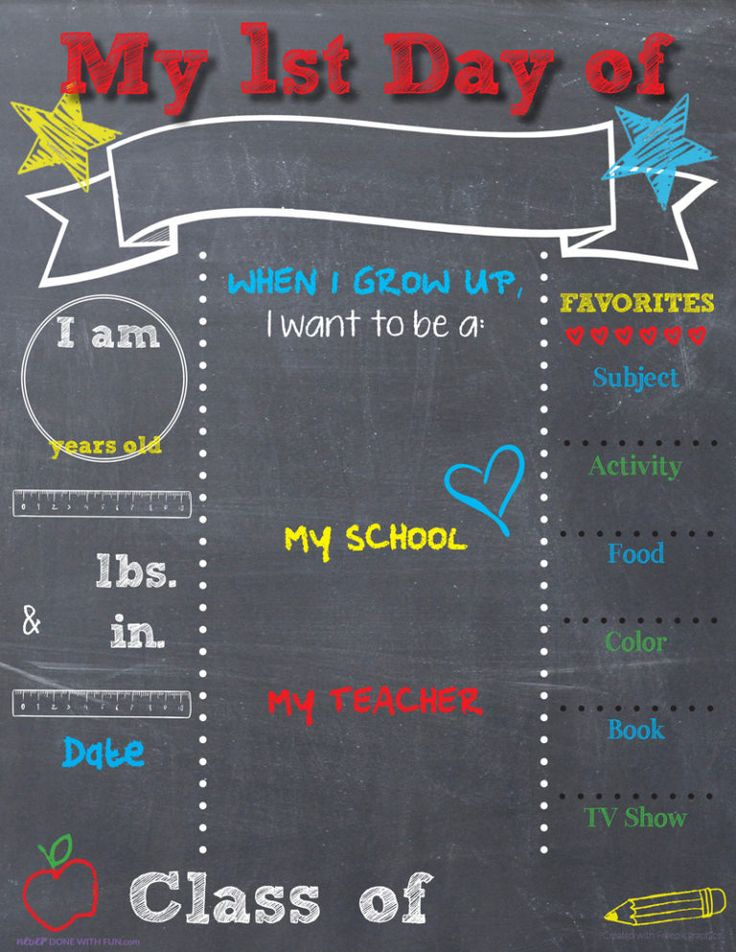 My 1st Day of
I am
years old
0 1 2 3 4 5 6 7 8 9
lbs.
& in.
0 1 2 3 4 5 6 7 8 9
Date
WHEN I GROW UP,
I want to be a:
MY SCHOOL
MY TEACHER
FAVORITES
Subject
Activity
Food
Color
Book
TV Show
Class of
never DONE WITH FUN.com
Created with